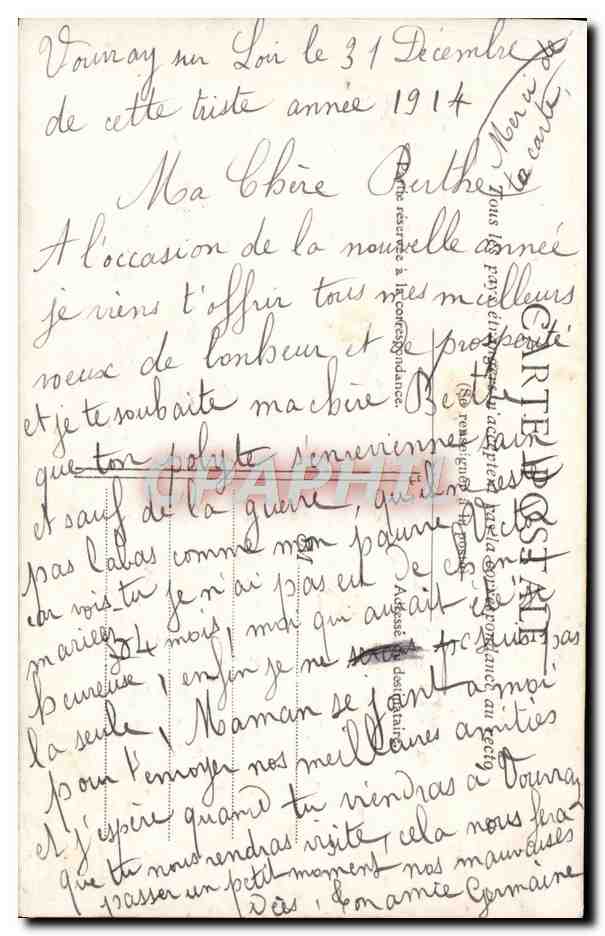 Vouvray sur Loir le 31 Décembre
de cette triste année 1914
Merci de
ta carte
Ma Chère Berthe
A l'occasion de la nouvelle année
je viens t'offrir tous mes meilleurs
voeux de bonheur et de prospérité
et je te souhaite ma chère Berthe
que ton polyte s'enrevienne sain
et sauf de la guerre, qu'il ne reste
pas labas comme mon pauvre
car vois-tu je n'ai pas eu de chance
mariée 4 mois, moi qui aurait été si
heureuse, enfin je ne suis pas
la seule, Maman se joint a moi
pour t'envoyer nos meilleures amitiés
et j'espère quand tu viendras à Vouvray
que tu nous rendras visite, cela nous fera
passer un petit moment nos mauvaises
idées, ton amie Germaine
CARTE POSTALE
Tous les pays étrangers n'acceptent pas la correspondance au recto
(Se renseigner à la poste)
Partie réservée à la correspondance.
Adresse du destinataire
CPAPHIL